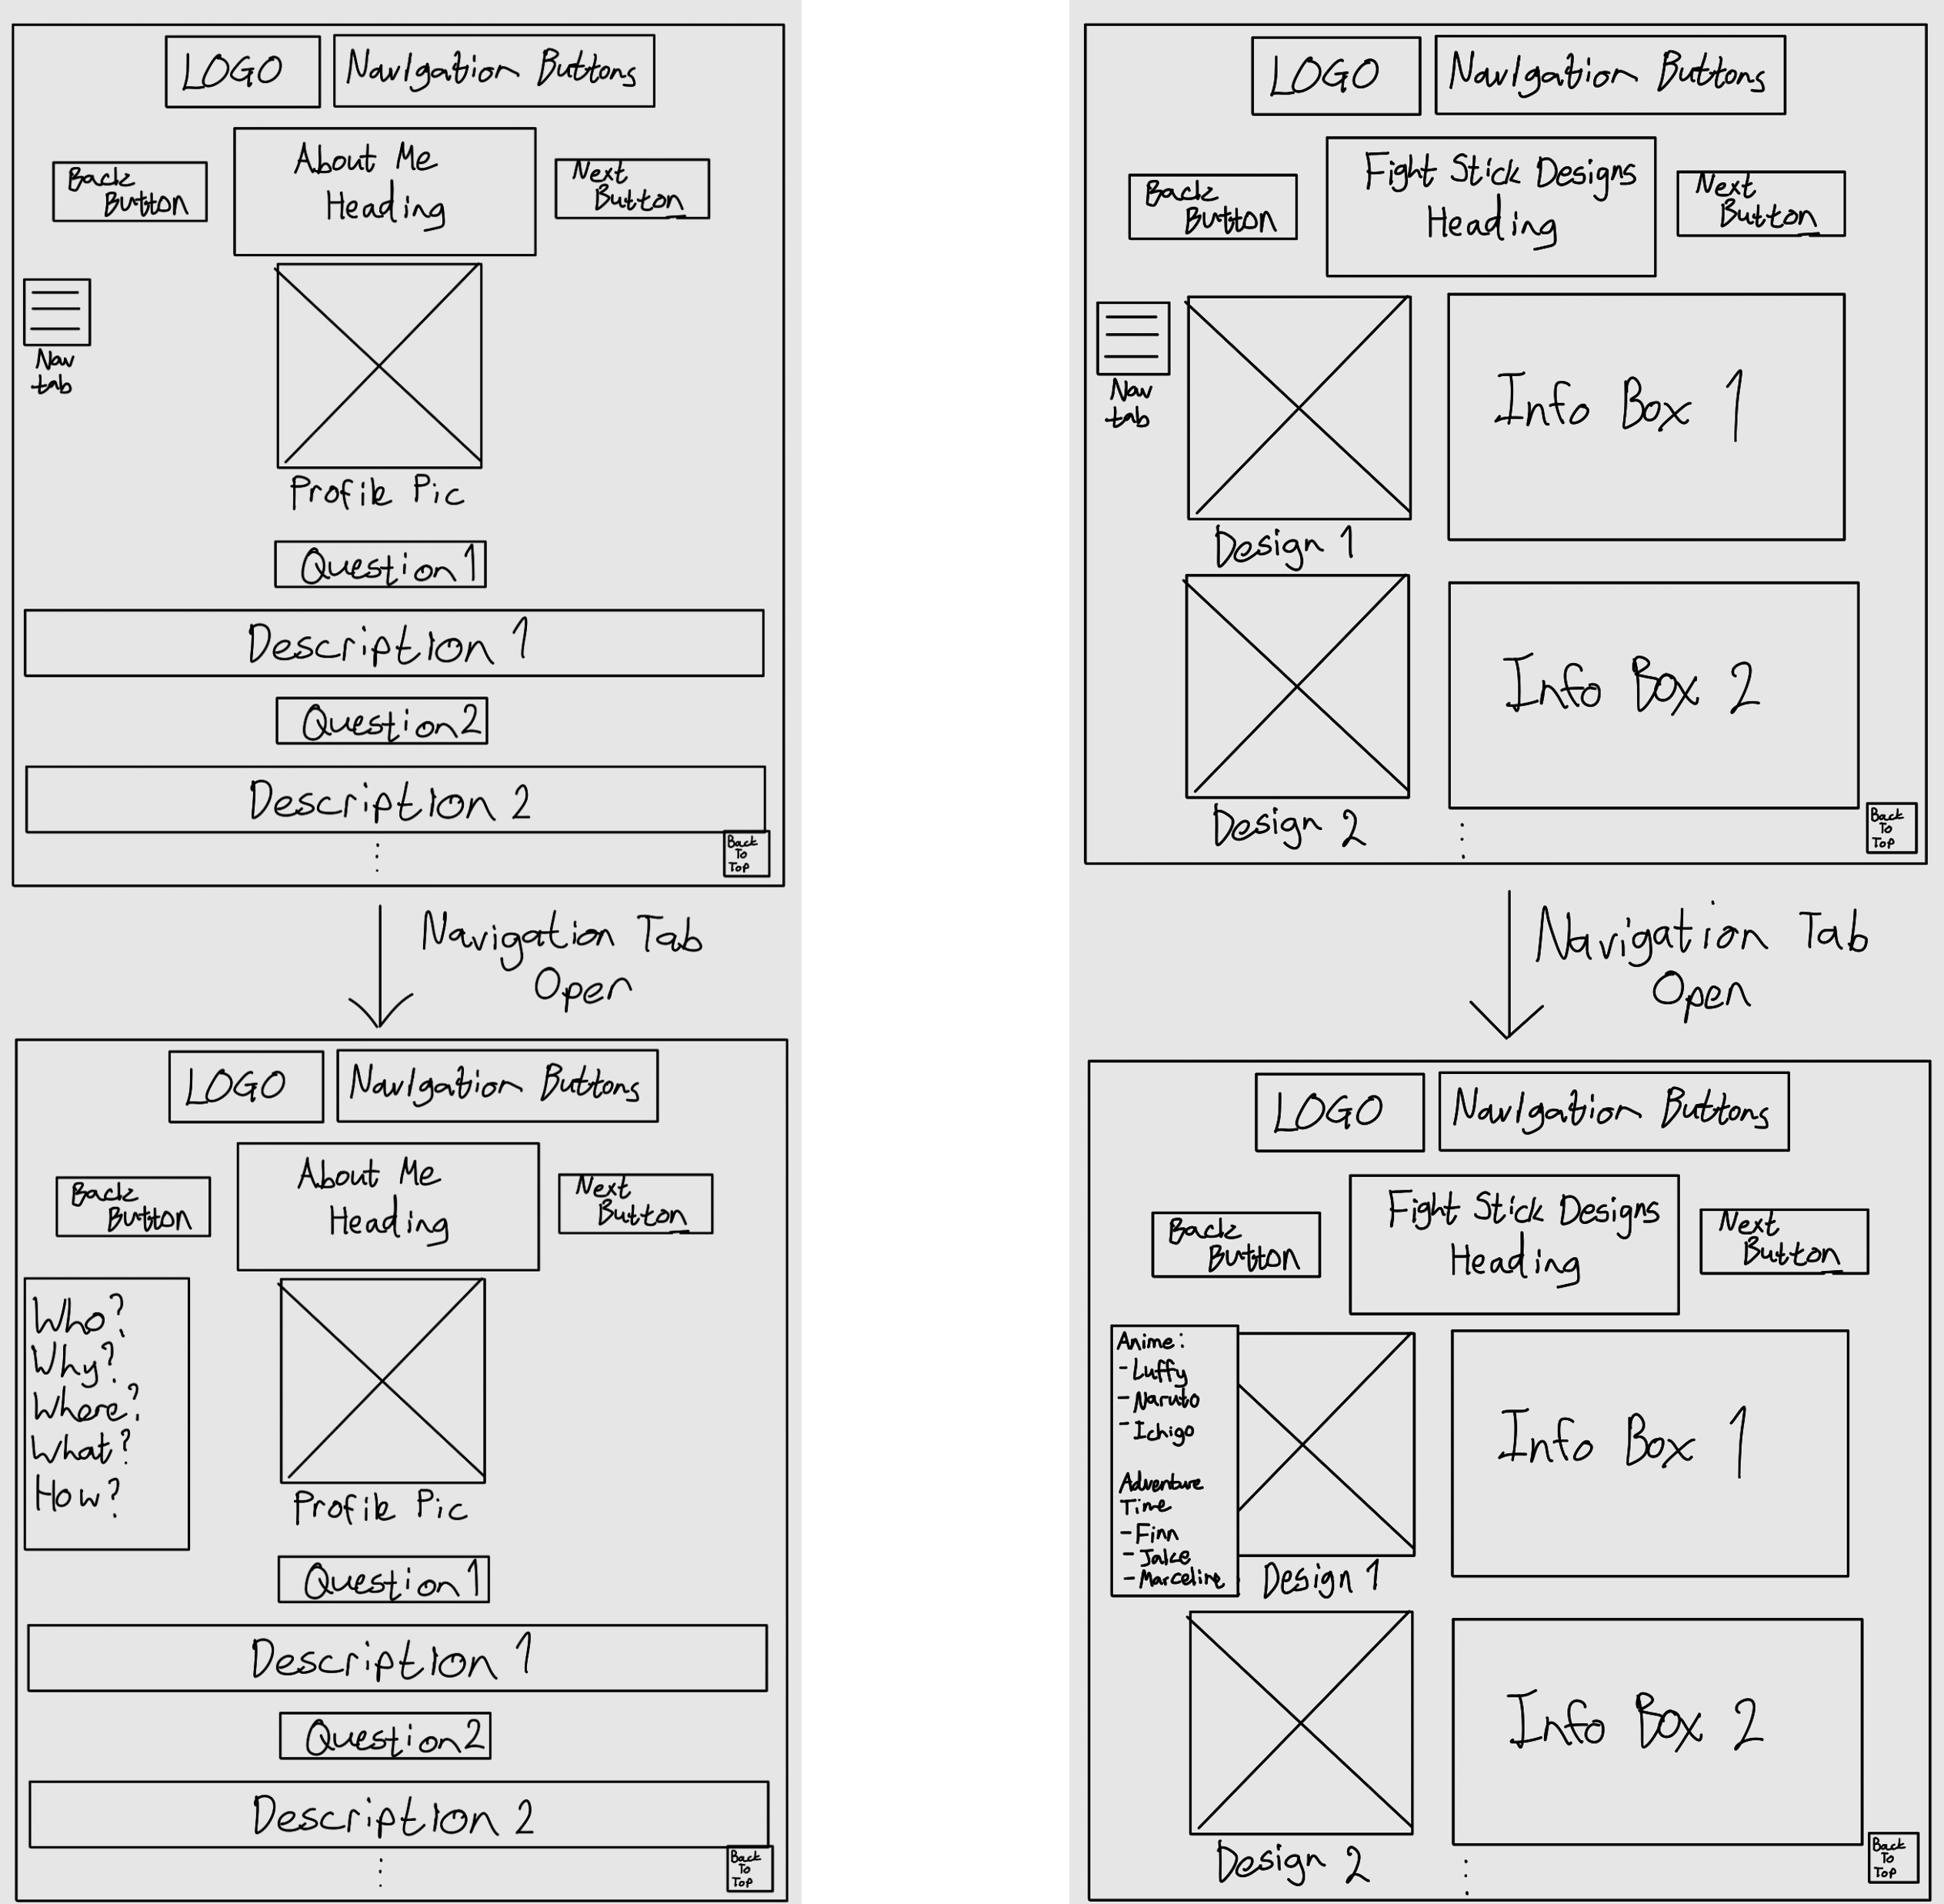 LOGO
Navigation Buttons
Back
Button
About Me
Heading
Next
Button
Nav
tab
Profile Pic
Question 1
Description 1
Question 2
Description 2
Back
To
Top
Navigation Tab
Open
LOGO
Navigation Buttons
Back
Button
About Me
Heading
Next
Button
Who?
Why?
Where?
What?
How?
Profile Pic
Question 1
Description 1
Question 2
Description 2
Back
To
Top
LOGO
Navigation Buttons
Back
Button
Fight Stick Designs
Heading
Next
Button
Nav
tab
Info Box 1
Design 1
Info Box 2
Design 2
Back
To
Top
Navigation Tab
Open
LOGO
Navigation Buttons
Back
Button
Fight Stick Designs
Heading
Next
Button
Anime:
- Luffy
- Naruto
- Ichigo
Adventure
Time
- Finn
- Jake
- Marceline
Info Box 1
Design 1
Info Box 2
Design 2
Back
To
Top